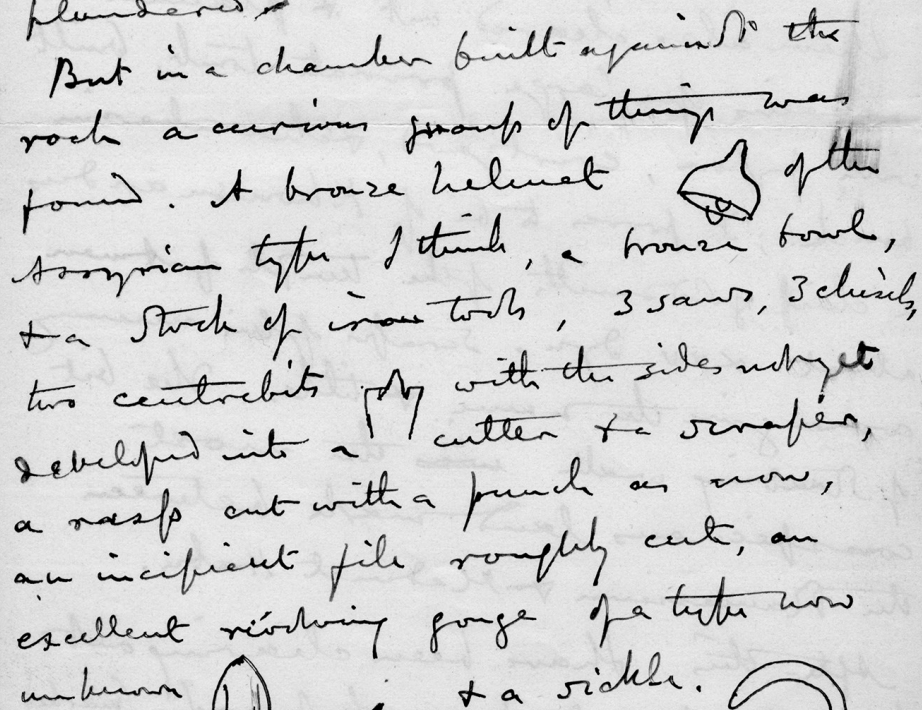 plundered.
But in a chamber built against the
rock a curious group of things was
found. A bronze helmet of the
Assyrian type I think, a bronze bowl,
& a stock of iron tools, 3 saws, 3 chisels,
two centrebits with the sides not yet
developed into a cutter & a scraper,
a rasp cut with a punch as now,
an incipient file roughly cut, an
excellent revolving gouge of a type now
unknown & a sickle.